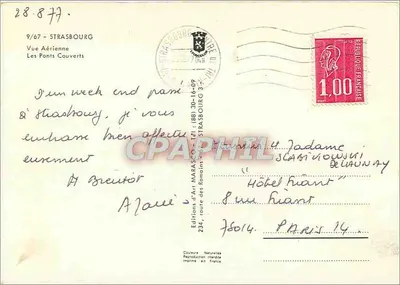 28.8.77.
9/67 - STRASBOURG
Vue Aérienne
Les Ponts Couverts
d'un week end passé
à Strasbourg, je vous
embrasse bien affectu
eusement
A Bientôt
Editions d'Art MARASCO - Tél. (88) 30-16-09
234, route des Romains - STRASBOURG
RÉPUBLIQUE FRANÇAISE
1.00
Monsieur et Madame
"Hôtel
8 rue
75014. PARIS 14.
Couleurs Naturelles
Reproduction interdite
Imprimé en France
CPAPHIL